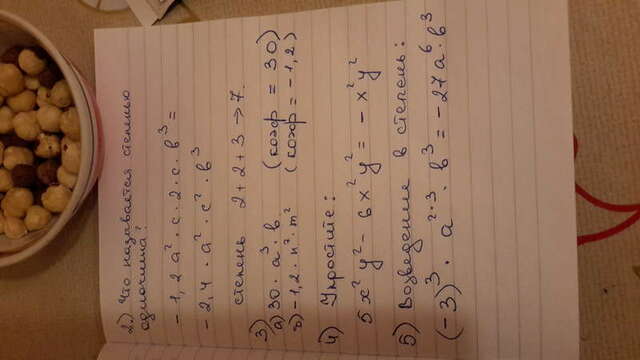 2.) Что называется степенью
одночлена?
- 1,2 a² · c · 2 · c · b³ =
- 2,4 · a² · c² · b³
степень 2+2+3 → 7.
3)
а) 30 · a³ · b (коэф = 30)
б) - 1,2 · n² · m² (коэф = - 1,2)
4) Упростите:
5x²y² - 6x²y² = - x²y²
5) Возведение в степень:
(-3)³ · a^{2·3} · b³ = - 27a⁶ · b³